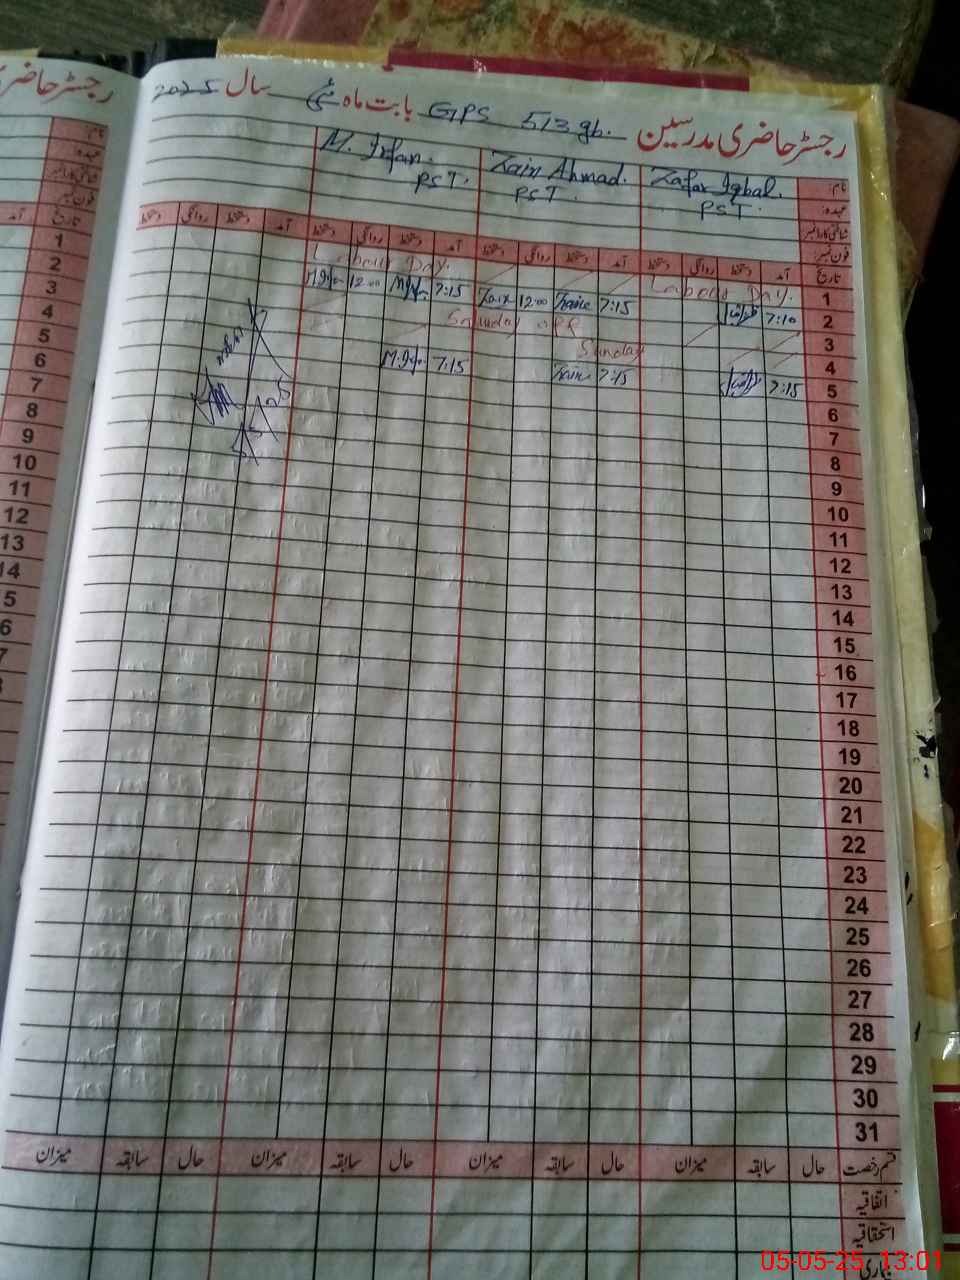 رجسٹر حاضری مدرسین GPS 513 gb. بابت ماہ مئی سال 2025
نام: Zafar Iqbal. Zain Ahmad. M. Irfan.
عہدہ: PST. PST. PST.
شناختی کارڈ نمبر
فون نمبر:
تاریخ آمد دستخط روانگی دستخط آمد دستخط روانگی دستخط آمد دستخط روانگی دستخط آمد دستخط روانگی دستخط
1 Labour Day. Labour Day.
2 7:10 7:15 Zain 12:00 Zain 7:15 M.Irfan 12:00 M.Irfan
3 Saturday off
4 Sunday
5 7:15 7:15 Zain 7:15 M.Irfan
6
7
8
9
10
11
12
13
14
15
16
17
18
19
20
21
22
23
24
25
26
27
28
29
30
31
قسم رخصت حال سابقہ میزان حال سابقہ میزان حال سابقہ میزان حال سابقہ میزان
اتفاقیہ
استحقاقیہ
بیماری
رجسٹر حاضری
نام:
عہدہ:
شناختی کارڈ نمبر
فون نمبر:
تاریخ آمد
1
2
3
4
5
6
7
8
9
10
11
12
13
14
5
6
7
05-05-25, 13:01